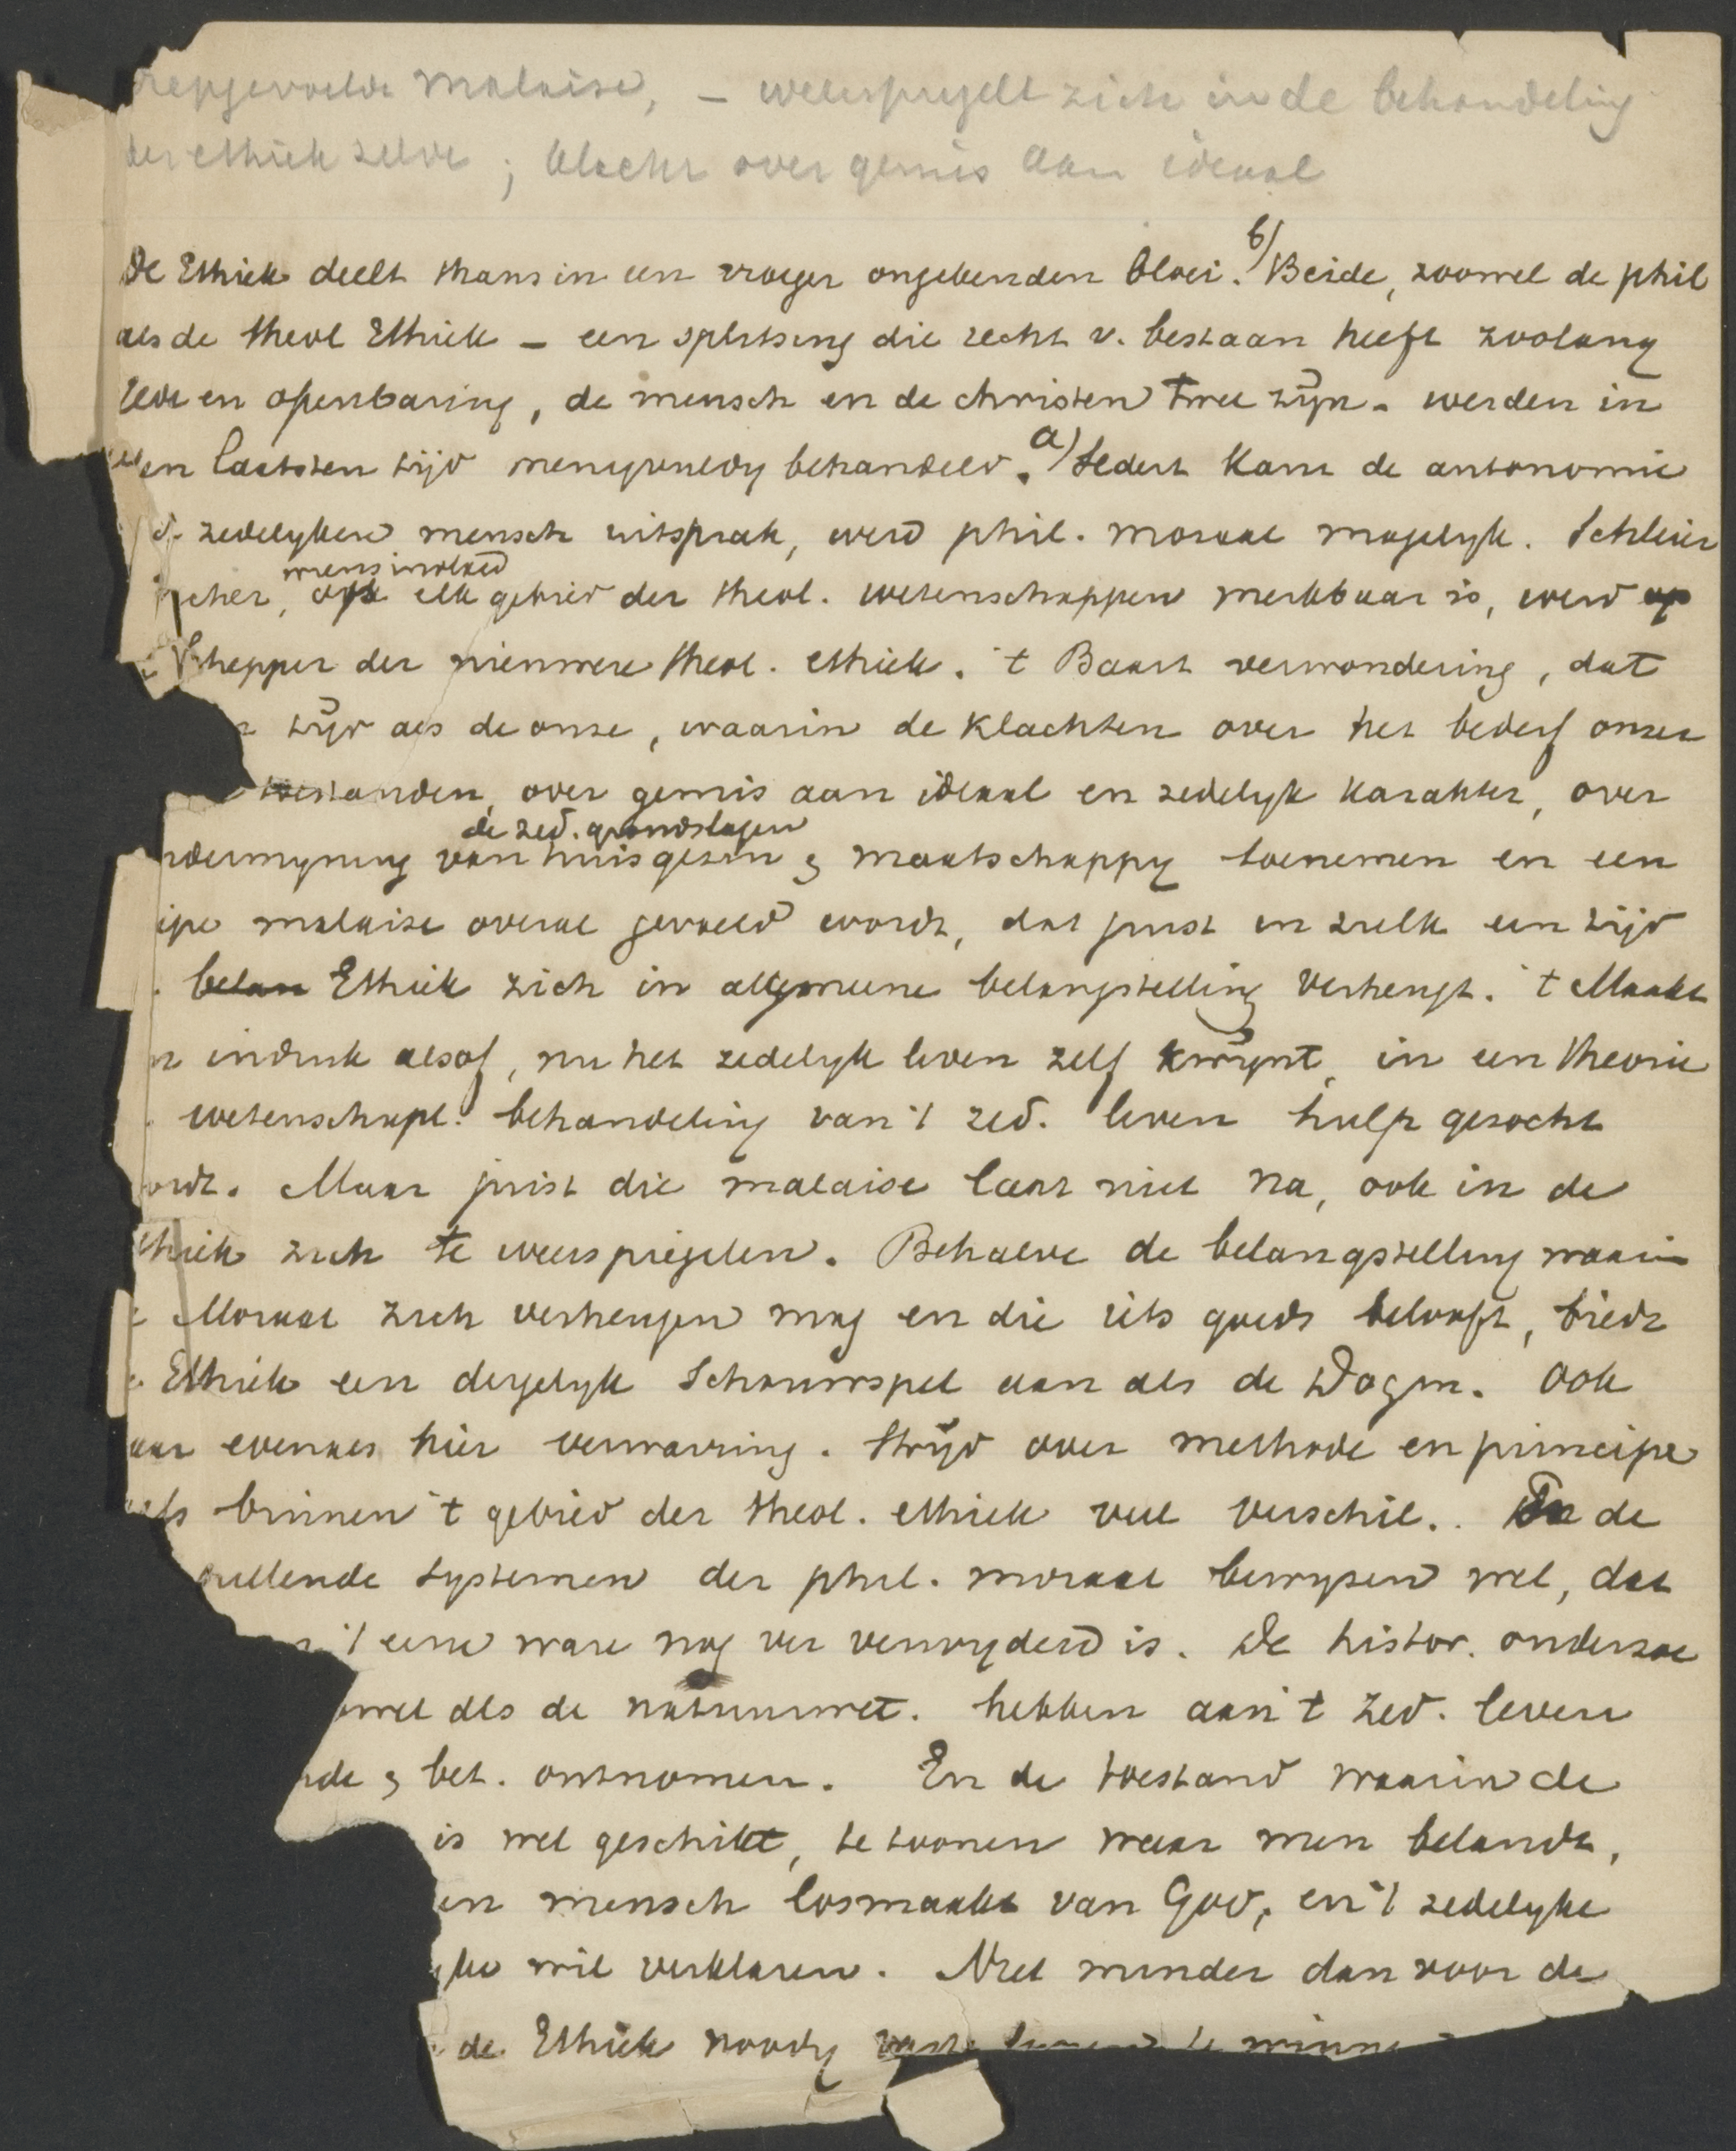 diepgevoelde malaise, – weerspiegelt zich in de behandeling
der ethiek zelve; klacht over gemis aan ideaal
De Ethiek deelt thans in een vroeger ongekenden bloei. b/ Beide, zoowel de phil
als de theol Ethiek – een splitsing die recht v. bestaan heeft zoolang
rede en openbaring, de mensch en de christen twee zijn – werden in
den laatsten tijd menigvuldig behandeld. a/ Sedert Kant de autonomie
v/d zedelyken mensch uitsprak, werd phil. moraal mogelyk. Schleier
macher, wiens invloed
op elk gebied der theol. wetenschappen merkbaar is, werd op
Schepper der nieuwere theol. ethiek. 't Baart verwondering, dat
tijd als de onze, waarin de klachten over het bederf onzer
toestanden, over gemis aan ideaal en zedelyk karakter, over
de zed. grondslagen
ndermyning van huisgezin & maatschappy toenemen en een
iepe malaise overal gevoeld wordt, dat juist in zulk een tijd
belan Ethiek zich in algemeene belangstelling verheugt. 't Maakt
n indruk alsof, nu het zedelyk leven zelf kwynt, in een theorie
wetenschapl. behandeling van 't zed. leven hulp gezocht
ordt. Maar juist die malaise laat niet na, ook in de
thiek zich te weerspiegelen. Behalve de belangstelling waarin
e Moraal zich verheugen mag en die iets goeds belooft, biedt
e Ethiek een dergelyk Schouwspel aan als de Dogm. Ook
aar evenals hier verwarring. Stryd over methode en principe
elfs binnen 't gebied der theol. ethiek veel verschil.. En de
hillende systemen der phil. moraal bewyzen wel, dat
n 't eene ware nog ver verwyderd is. De histor. onderzoe
owel als de natuurwet. hebben aan 't zed. leven
rde & bet. ontnomen. En de toestand waarin de
is wel geschikt, te toonen waar men belandt,
en mensch losmaakt van God, en 't zedelyke
yke wil verklaren. Niet minder dan voor de
de Ethiek noodig vaste te winne